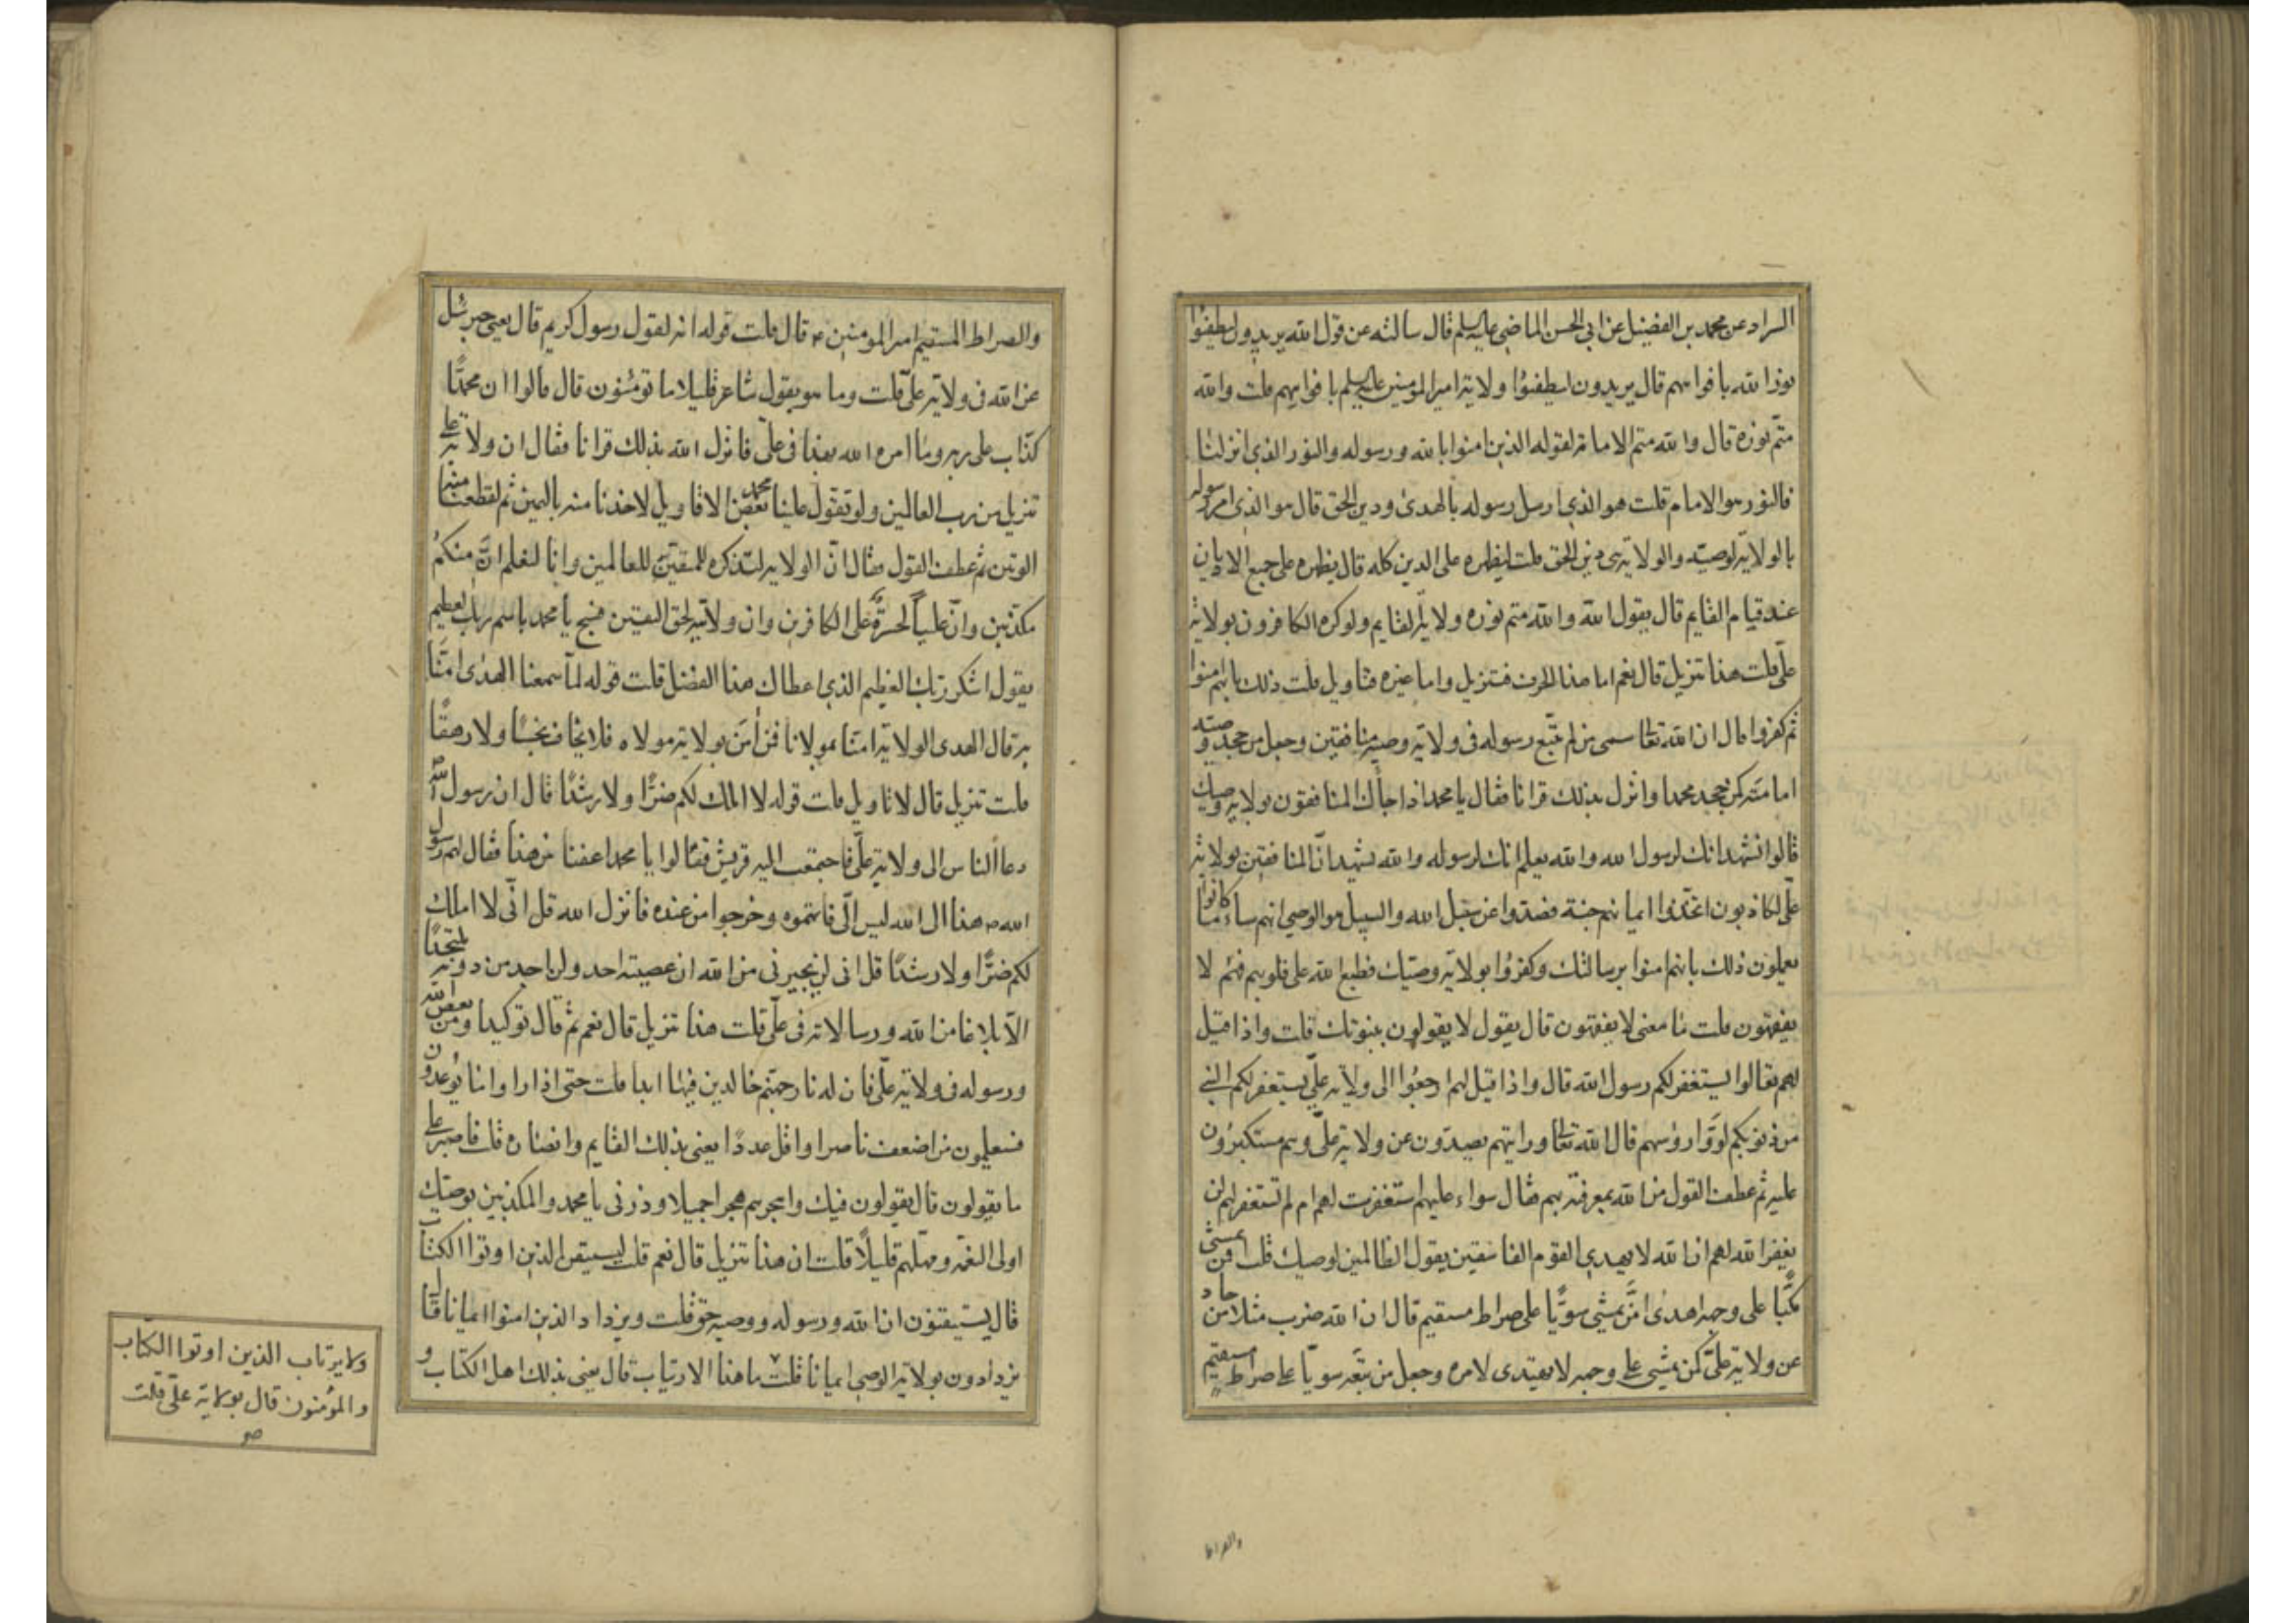 السراد عن محمد بن الفضيل عن ابي الحسن الماضي عليه السلم قال سالته عن قول الله يريدون ليطفئوا
نور الله بافواههم قال يريدون ليطفئوا ولاية امير المومنين عليه السلم بافواههم قلت والله
متم نوره قال والله متم الامامة لقوله الذين امنوا بالله ورسوله والنور الذي انزلنا
فالنور هو الامام قلت هو الذي ارسل رسوله بالهدى ودين الحق قال هو الذي امر رسوله
بالولاية لوصيه والولاية هي دين الحق قلت ليظهره على الدين كله قال يظهره على جميع الاديان
عند قيام القايم قال يقول الله والله متم نوره ولاية القايم ولو كره الكافرون بولاية
علي قلت هذا تنزيل قال نعم اما هذا الحرف فتنزيل واما غيره فتاويل قلت ذلك بانهم امنوا
ثم كفروا قال ان الله تعالى سمى من لم يتبع رسوله في ولاية وصيه منافقين وجعل من جحد وصيته
امامته كمن جحد محمدا وانزل بذلك قرانا فقال يا محمد اذا جاءك المنافقون بولاية وصيك
قالوا نشهد انك لرسول الله والله يعلم انك لرسوله والله يشهد انّ المنافقين بولاية
علّى لكاذبون اتخذوا ايمانهم جنة فصدوا عن سبيل الله والسبيل هو الوصي انهم ساء ما كانوا
يعملون ذلك بانهم امنوا برسالتك وكفروا بولاية وصيك فطبع الله على قلوبهم فهم لا
يفقهون قلت ما معنى لا يفقهون قال يقول لا يقولون بنبوتك قلت واذا قيل
لهم تعالوا يستغفر لكم رسول الله قال واذا قيل لهم ارجعوا الى ولاية علي يستغفر لكم النبي
من ذنوبكم لووا روسهم قال الله تعالى ورايتهم يصدون عن ولاية علي وهم مستكبرون
عليه ثم عطف القول من الله بمعرفته بهم فقال سواء عليهم استغفرت لهم ام لم تستغفر لهم لن
يغفر الله لهم ان الله لا يهدي القوم الفاسقين يقول الظالمين لوصيك قلت فمن يمشي
مكبّا على وجهه اهدى امّن يمشي سويّا على صراط مستقيم قال ان الله ضرب مثلا من حاد
عن ولاية علي كمن يمشي على وجهه لا يهتدى لامره وجعل من تبعه سويّا على صراط مستقيم
والصراط
والصراط المستقيم امير المومنين ع قال قلت قوله انه لقول رسول كريم قال يعني جبرئيل
عن الله في ولاية علي قلت وما هو بقول شاعر قليلا ما تومنون قال قالوا ان محمدًا
كذّاب على ربه وما امره الله بهذا في علّي فانزل الله بذلك قرانا فقال ان ولاية علي
تنزيل من رب العالمين ولو تقول علينا محمد بعض الاقاويل لاخذنا منه باليمين ثم لقطعنا منه
الوتين ثم عطف القول فقال انّ الولاية لتذكرة للمتقين للعالمين وانا لنعلم انّ منكم
مكذبين وانّ عليّا لحسرة على الكافرين وان ولايته لحق اليقين فسبح يا محمد باسم ربك العظيم
يقول اشكر ربك العظيم الذي اعطاك هذا الفضل قلت قوله لمّا سمعنا الهدى امَنّا
به قال الهدى الولاية امنّا بمولانا فمن امن بولاية مولاه فلا يخاف بخسًا ولا رهقًا
قلت تنزيل قال لا تاويل قلت قوله لا املك لكم ضرّا ولا رشدًا قال ان رسول الله ص
دعا الناس الى ولاية علّى فاجتمعت اليه قريش فقالوا يا محمد اعفنا من هذا فقال لهم رسول
الله ص هذا الى الله ليس الّى فاتهموه وخرجوا من عنده فانزل الله قل انّى لا املك
لكم ضرًّا ولا رشدًا قل انى لن يجيرنى من الله ان عصيته احد ولن اجد من دونه ملتحدًا
الّا بلاغا من الله ورسالاته فى علّى قلت هذا تنزيل قال نعم ثم قال توكيدا ومن يعص الله
ورسوله فى ولاية علّى فان له نار جهنم خالدين فيها ابدا قلت حتى اذا راوا ما يوعدون
فسيعلمون من اضعف ناصرا واقل عددًا يعنى بذلك القايم وانصاره قلت فاصبر على
ما يقولون قال يقولون فيك واهجرهم هجرا جميلا وذرنى يا محمد والمكذبين بوصيك
اولى النعمة ومهلهم قليلًا قلت ان هذا تنزيل قال نعم قلت ليستيقن الذين اوتوا الكتاب
قال يستيقنون ان الله ورسوله ووصيه حق قلت ويزداد الذين امنوا ايمانا قال
يزدادون بولاية الوصى ايمانا قلت ما هذا الارتياب قال يعنى بذلك اهل الكتاب و
ولا يرتاب الذين اوتوا الكتاب
والمؤمنون قال بولاية علّى قلت
صح